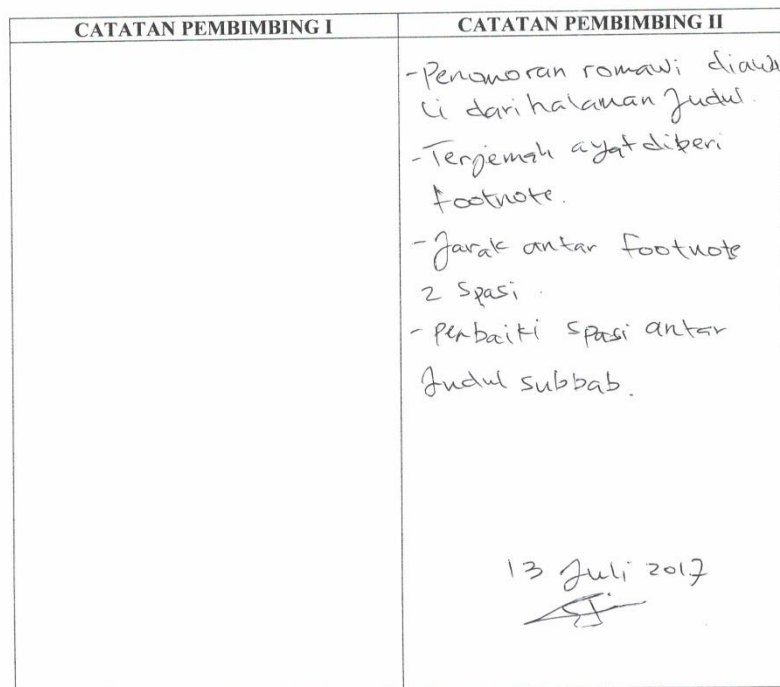 CATATAN PEMBIMBING I
CATATAN PEMBIMBING II
- Penomoran romawi diawa
li dari halaman Judul.
- Terjemah ayat diberi
footnote.
- Jarak antar footnote
2 spasi.
- Perbaiki spasi antar
Judul subbab.
13 Juli 2017